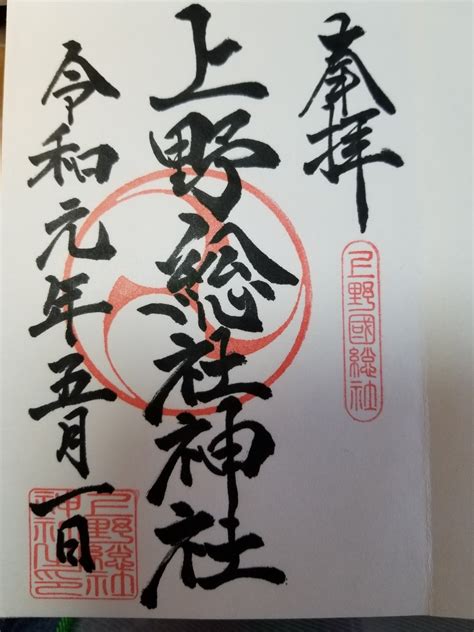 奉拝
上野國総社
上野総社神社
令和元年五月一日
上野総社
神社之印